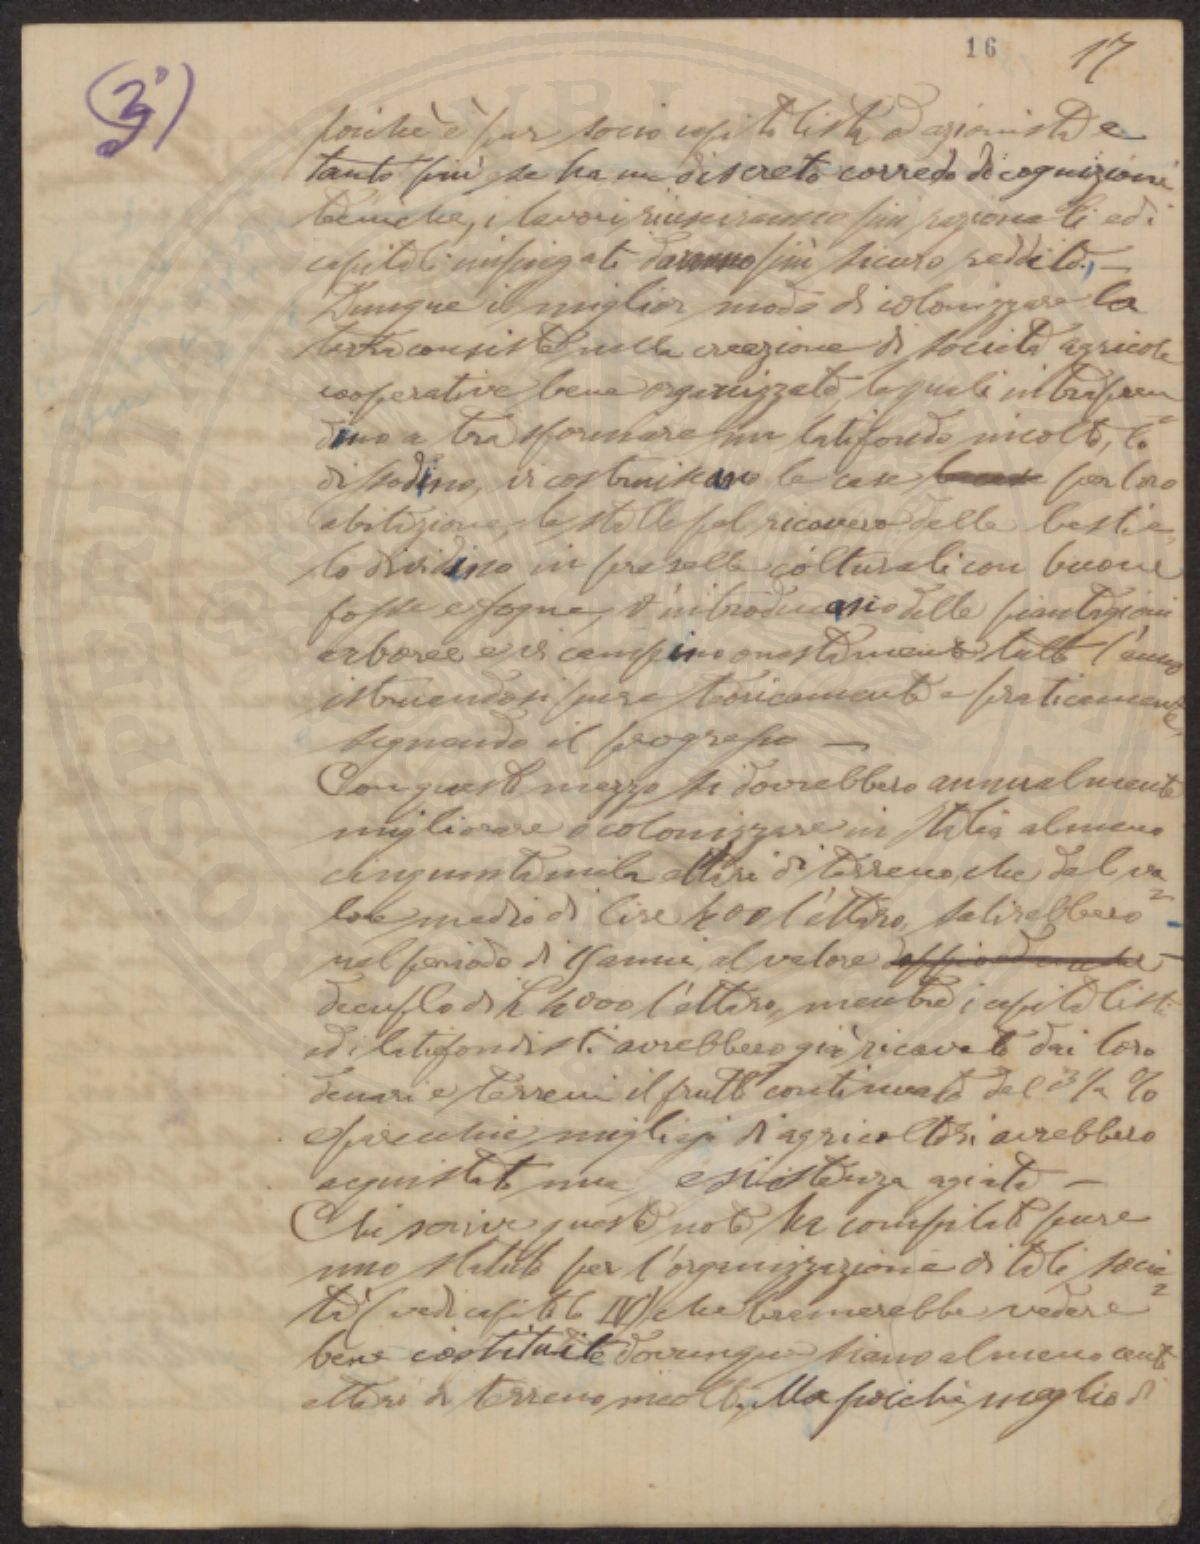 16 17
(3°)
poichè è pur socio capitalista od azionista e
tanto più se ha un discreto corredo di cognizioni
tecniche, i lavori riusciranno più razionali ed i
capitali impiegati daranno più sicuro reddito. —
Dunque il miglior modo di colonizzare la
terra consiste nella creazione di società agricole
cooperative bene organizzate, le quali intrapren=
dino a trasformare un latifondo incolto, lo
dissodino, vi costruiscano le case per loro
abitazione, le stalle pel ricovero delle bestie,
lo dividino in preselle colturali con buone
fosse e fogne, v'introducano delle piantagioni
arboree e vi campino onestamente tutto l'anno
istruendosi pure teoricamente e praticamente,
seguendo il progresso —
Con questo mezzo si dovrebbero annualmente
migliorare o colonizzare in Italia almeno
cinquantamila ettari di terreno, che dal va=
lore medio di lire 400 l'ettaro, salirebbero
nel periodo di 15 anni, al valore
decuplo di L 4000 l'ettaro, mentre i capitalisti
ed i latifondisti avrebbero già ricavato dai loro
denari e terreni il frutto continuato del 3 1/2 %
e parecchie migliaja di agricoltori avrebbero
acquistato una esistenza agiata —
Chi scrive queste note ha compilato pure
uno statuto per l'organizzazione di tali socie=
tà (vedi capitolo IV) che bramerebbe vedere
bene costituite dovunque siano almeno cento
ettari di terreno incolto. Ma poichè meglio di